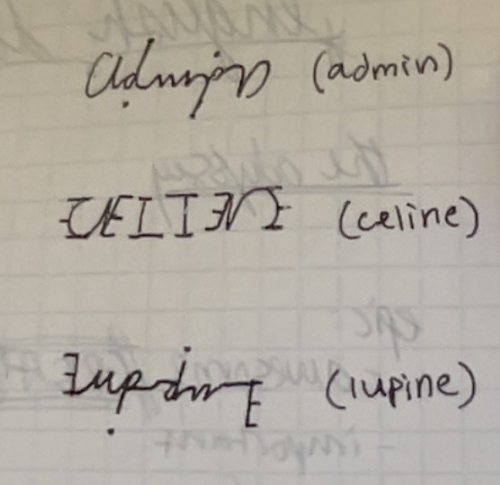 admin (admin)
CELINE (celine)
lupine (lupine)